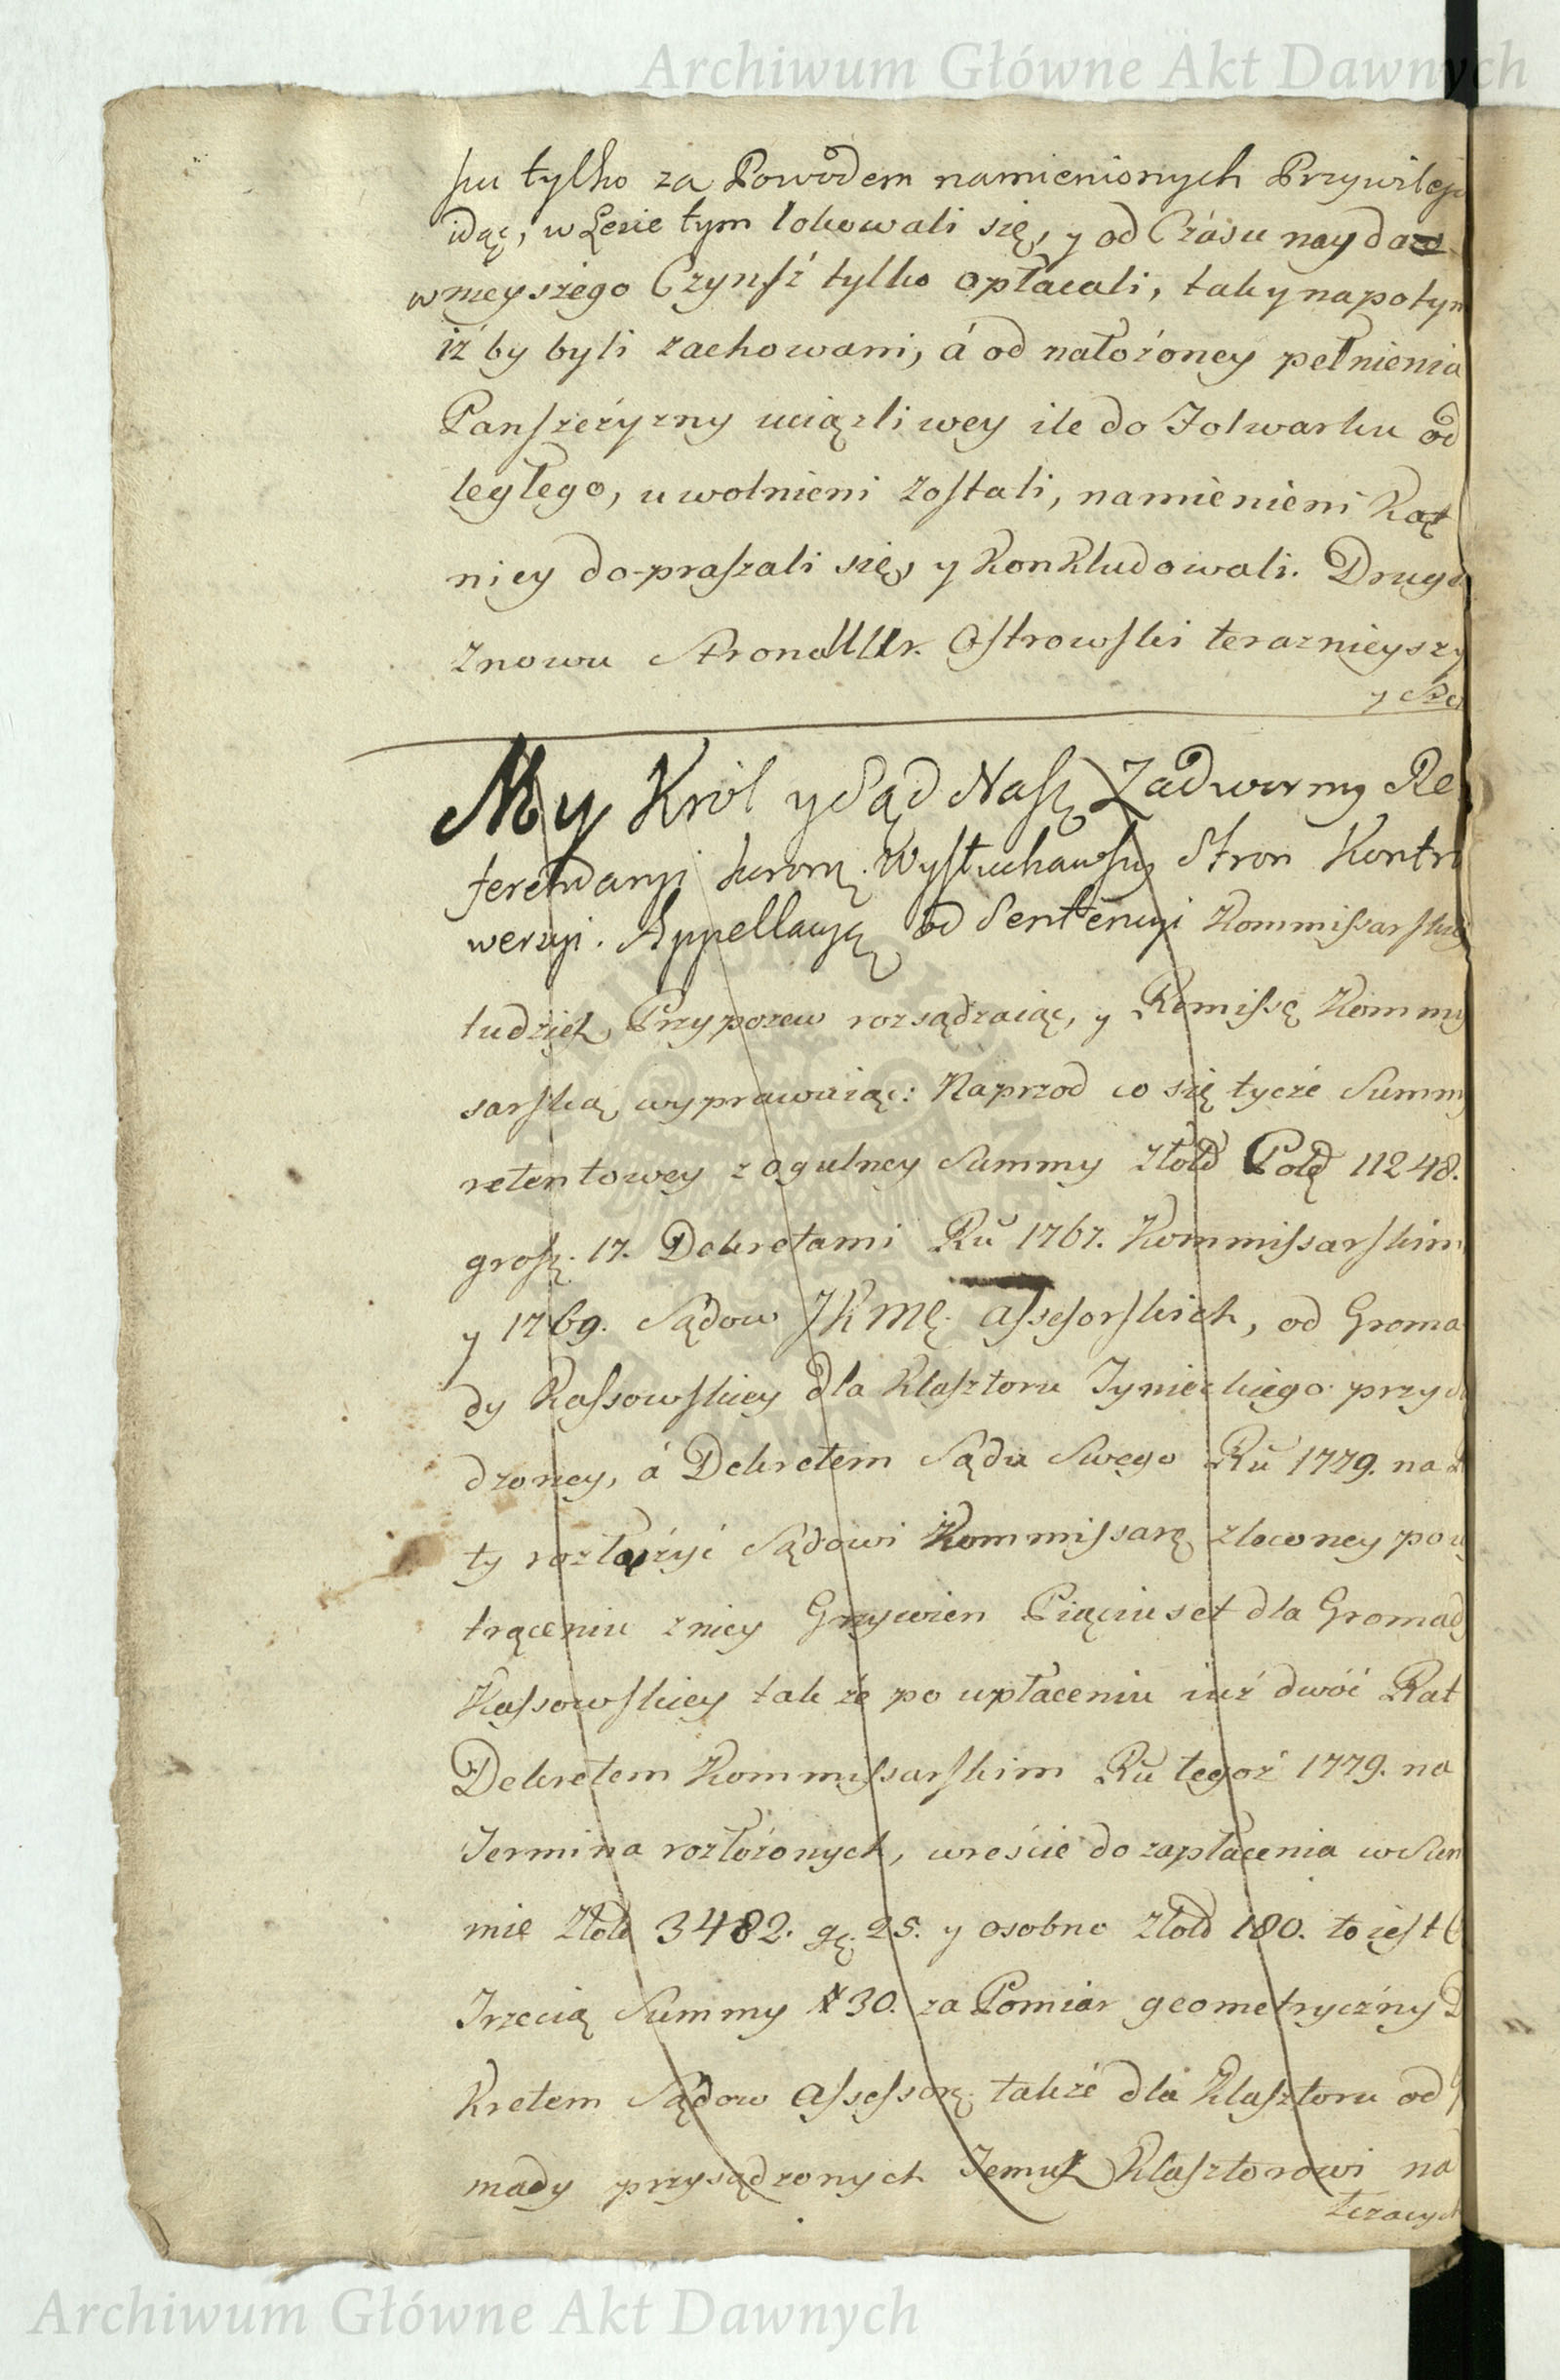 Archiwum Główne Akt Dawnych
su tylko za Powodem namienionych Przywilejo
idąc, w Lesie tym lokowali się, y od Czásu nay daw
wnieyszego Czynsz tylko opłacali, tak y napotym
iż by byli zachowani, á od nałożoney pełnienia
Panszczyzny uciązliwey ile do Folwarku od
ległego, uwolnieni zostali, namienieni Kąt
nicy do-praszali się, y Konkludowali. Druga
znowu Strona Ur. Ostrowski teraznieyszy
y Sw
My Król y Sąd Nasz Zadworny Re
ferendaryi Koronny. Wysłuchawszy Stron Kontro
wersyi. Appellacyą od Sentencyi Kommissarskiey
tudzież Przypozew rozsądzaiąc, y Remissę Kommis
sarską wyprawuiąc: Naprzod co się tycze Summy
retentowey z ogulney Summy Złotd Polą 11248.
grosz. 17. Dekretami Ru 1767. Kommissarskim
y 1769. Sądow JKMę. Assessorskich, od Groma
dy Kassowskiey dla Klasztoru Tynieckiego przysą
dzoney, á Dekretem Sądu Swego Ru 1779. na Ra
ty rozłożyć Sądowi Kommissarę zleconey po wy
trąceniu zniey Grzywien Piąciuset dla Gromady
Kassowskiey tak że po wpłaceniu iuż dwóć Rat
Dekretem Kommissarskim Ru tegoż 1779. na
Termina rozłożonych, wreście do zapłacenia w Sum
mie Złotd 3482. gę. 25. y osobno Złotd 180. to iest
Trzecią Summy 30. za Pomiar geometryczny D
Kretem Sądow Assessorę. także dla Klasztoru od
mady przysądzonych Temuż Klasztorowi na
leżących
Archiwum Główne Akt Dawnych